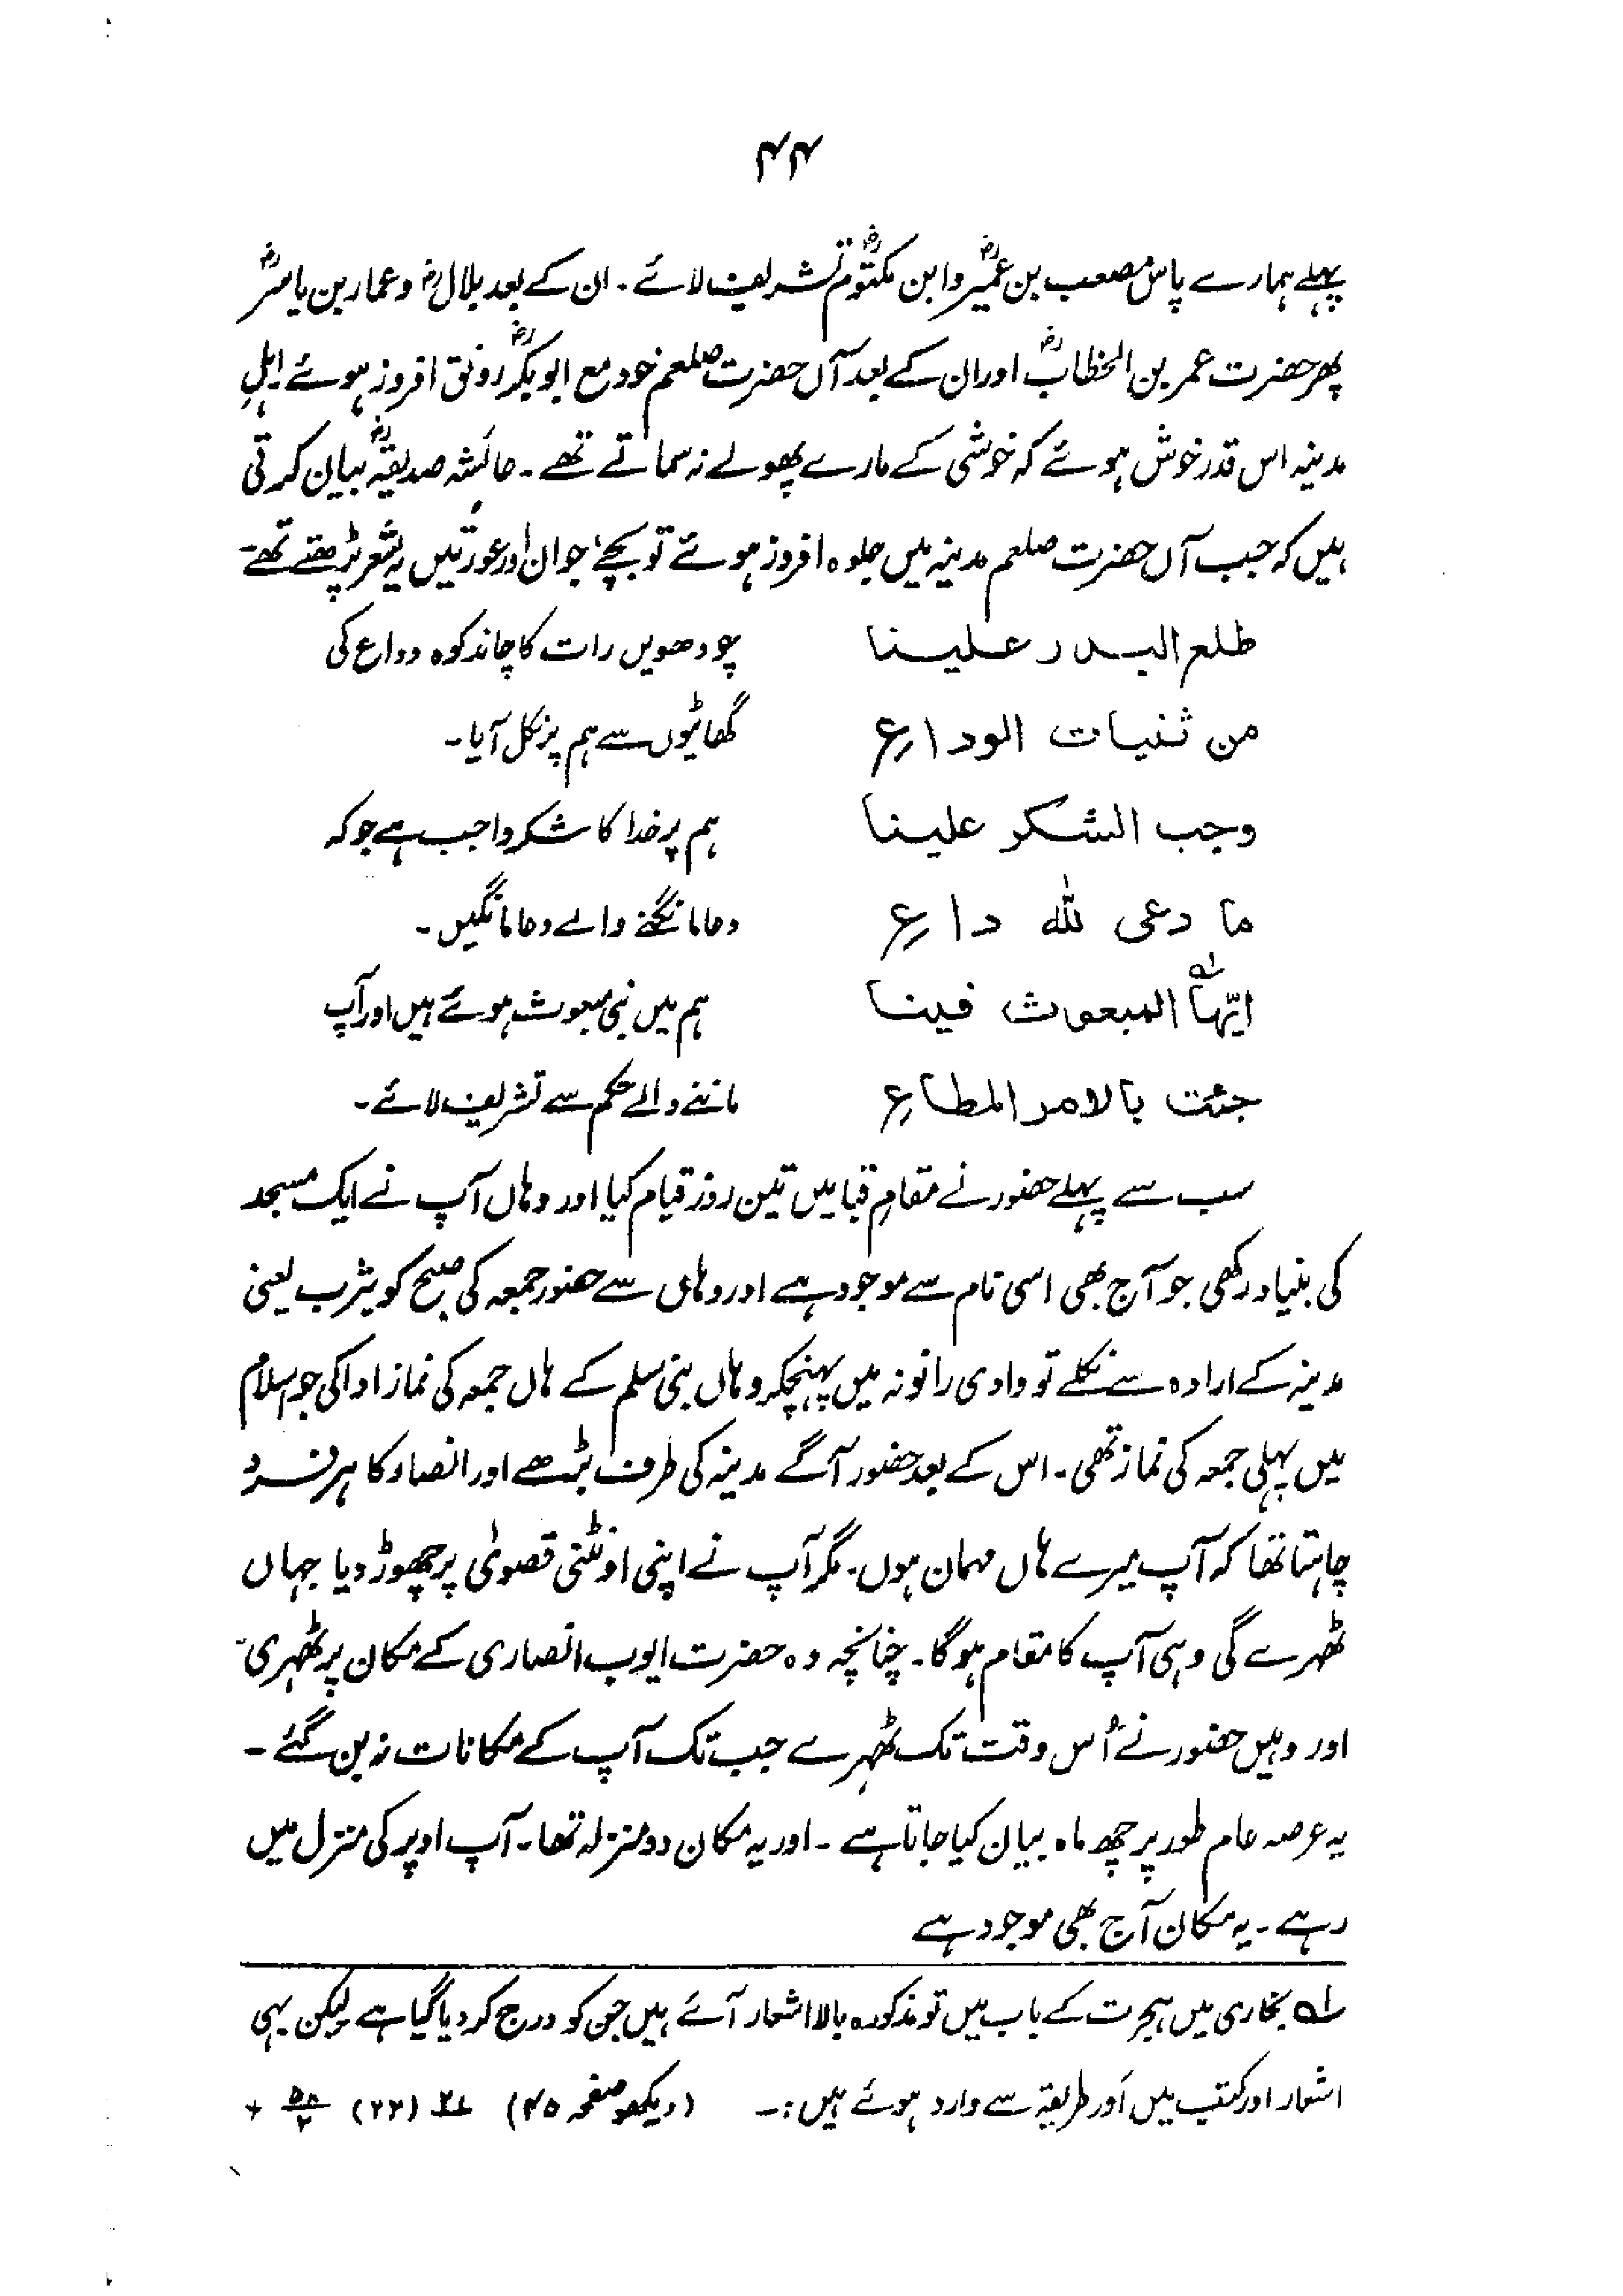 ۴۴
پہلے ہمارے پاس مصعب بن عمیرؓ و ابن مکتومؓ تشریف لائے ۔ ان کے بعد بلالؓ و عمار بن یاسرؓ
پھر حضرت عمر بن الخطابؓ اور ان کے بعد آں حضرت صلعم خود مع ابوبکرؓ رونق افروز ہوئے اہلِ
مدینہ اس قدر خوش ہوئے کہ خوشی کے مارے پھولے نہ سماتے تھے ۔ عائشہ صدیقہؓ بیان کرتی
ہیں کہ جب آں حضرت صلعم مدینہ میں جلوہ افروز ہوئے تو بچے، جوان اور عورتیں یہ شعر پڑھتے تھے ۔
طلع البدر علینا چودھویں رات کا چاند کوہ وداع کی
من ثنیات الوداع گھاٹیوں سے ہم پر نکل آیا ۔
وجب الشکر علینا ہم پر خدا کا شکر واجب ہے جو کہ
ما دعی للّٰه داع دعا مانگنے والے دعا مانگیں ۔
ایّها المبعوث فینا ہم میں نبی مبعوث ہوئے ہیں اور آپ
جئت بالامر المطاع ماننے والے حکم سے تشریف لائے ۔
سب سے پہلے حضور نے مقامِ قبا میں تین روز قیام کیا اور وہاں آپ نے ایک مسجد
کی بنیاد رکھی جو آج بھی اسی نام سے موجود ہے اور وہاں سے حضور جمعہ کی صبح کو یثرب یعنی
مدینہ کے ارادہ سے نکلے تو وادی رانونہ میں پہنچکر وہاں بنی سلم کے ہاں جمعہ کی نماز ادا کی جو اسلام
میں پہلی جمعہ کی نماز تھی ۔ اس کے بعد حضور آگے مدینہ کی طرف بڑھے اور انصار کا ہر فرد
چاہتا تھا کہ آپ میرے ہاں مہمان ہوں ۔ مگر آپ نے اپنی اونٹنی قصویٰ پر چھوڑ دیا جہاں
ٹھہرے گی وہی آپ کا مقام ہوگا ۔ چنانچہ وہ حضرت ایوب انصاری کے مکان پر ٹھہری ۔
اور وہیں حضور نے اُس وقت تک ٹھہرے جب تک آپ کے مکانات نہ بن گئے ۔
یہ عرصہ عام طور پر چھ ماہ بیان کیا جاتا ہے ۔ اور یہ مکان دو منزلہ تھا ۔ آپ اوپر کی منزل میں
رہے ۔ یہ مکان آج بھی موجود ہے
لہ بخاری میں ہجرت کے باب میں تو مذکورہ بالا اشعار آئے ہیں جن کو درج کر دیا گیا ہے لیکن یہی
اشعار اور کتب میں اَور طریقہ سے وارد ہوئے ہیں :۔ (دیکھو صفحہ ۴۵) (۲۲)